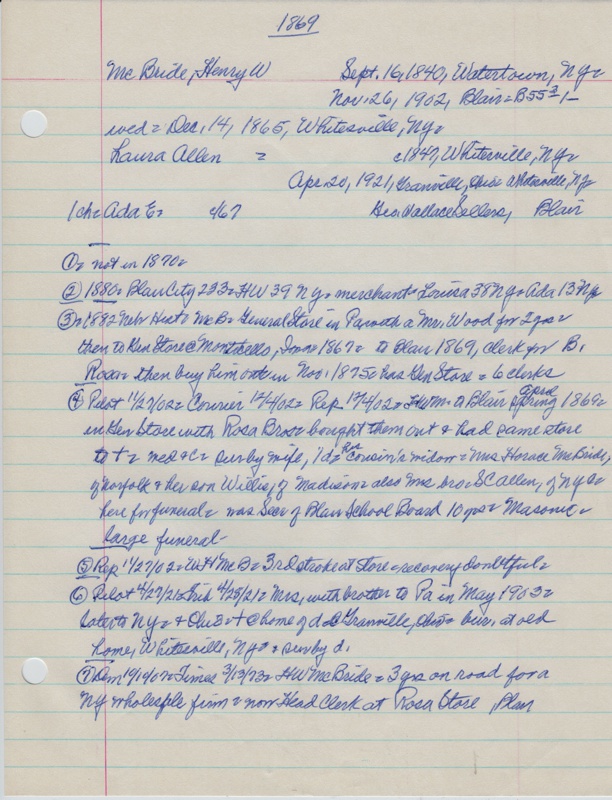 1869
McBride, Henry W Sept. 16, 1840, Watertown, Ny=
Nov. 26, 1902, Blair=B55
wed= Dec, 14, 1865, Whitesville, Ny=
Laura Allen = c1847, Whitesville, Ny=
Apr. 20, 1921, Granville, Ohio= Whitesville, Ny
1ch= Ada E= c/67 Geo. Wallace Sellers, Blair
① = not in 1870=
② 1880= Blair City 233= HW 39 Ny= merchant= Louisa 38 Ny= Ada 13 Ny
③ = 1882 Nebr Hist= McB= General Store in Pa with a Mr. Wood for 2 yrs=
then to Gen Store @ Monticello, Iowa= 1867= to Blair 1869, clerk for B.
Rosa= then buy him out in Nov. 1875= has Gen Store = 6 clerks
④ Pilot 11/27/02= Courier 12/4/02= Rep 12/4/02= HWM= to Blair April spring 1869=
in Gen Store with Rosa Bros= bought them out & had same store
to t = med & c = surby wife, 1d= his cousin's widow= Mrs Horace McBride,
of Norfolk & her son Willis, of Madison= also Mrs bro= SC Allen, of Ny=
here for funeral= was Secr of Blair School Board 10 yrs= Masonic=
large funeral
⑤ Rep 11/27/02= W McB= 3rd stroke at store= recovery doubtful=
⑥ Pilot 4/27/21= 4/25/21= Mrs, with brother to Pa in May 1903=
later to Ny= & Ohio= t @ home of d @ Granville, Ohio= bur, at old
home, Whitesville, Ny= surby d.
⑦ Times 3/13/73= HW McBride= 3 yrs on road for a
Ny wholesale firm= now Head Clerk at Rosa Store, Blair